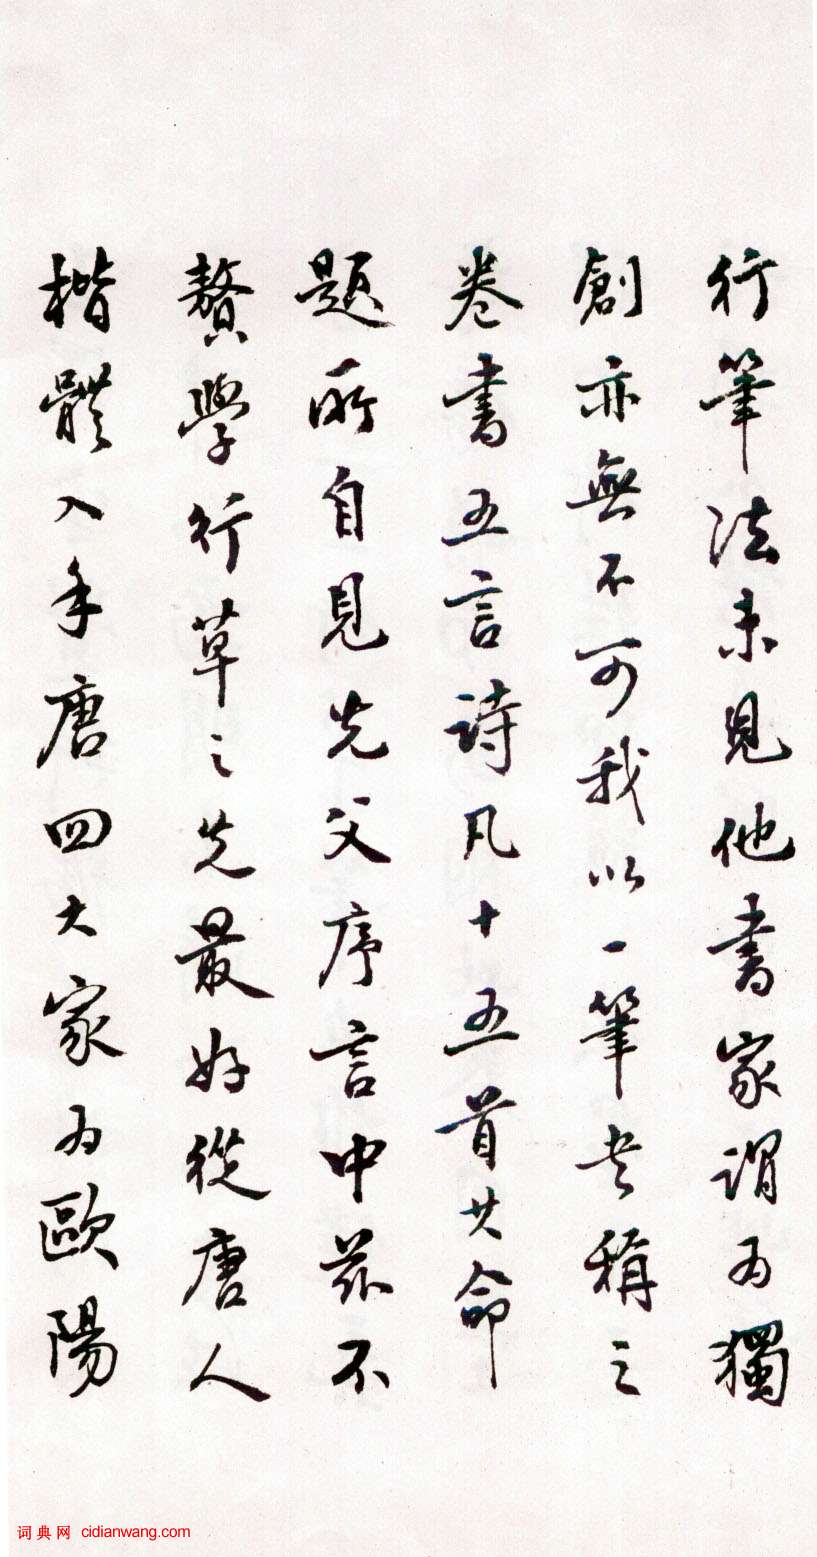 行筆法未見他書家謂為獨
創亦無不可我以一筆老稱之
卷書五言詩凡十五首其命
題所自見先父序言中茲不
贅學行草之先最好從唐人
楷體入手唐四大家為歐陽
词典网 cidianwang.com